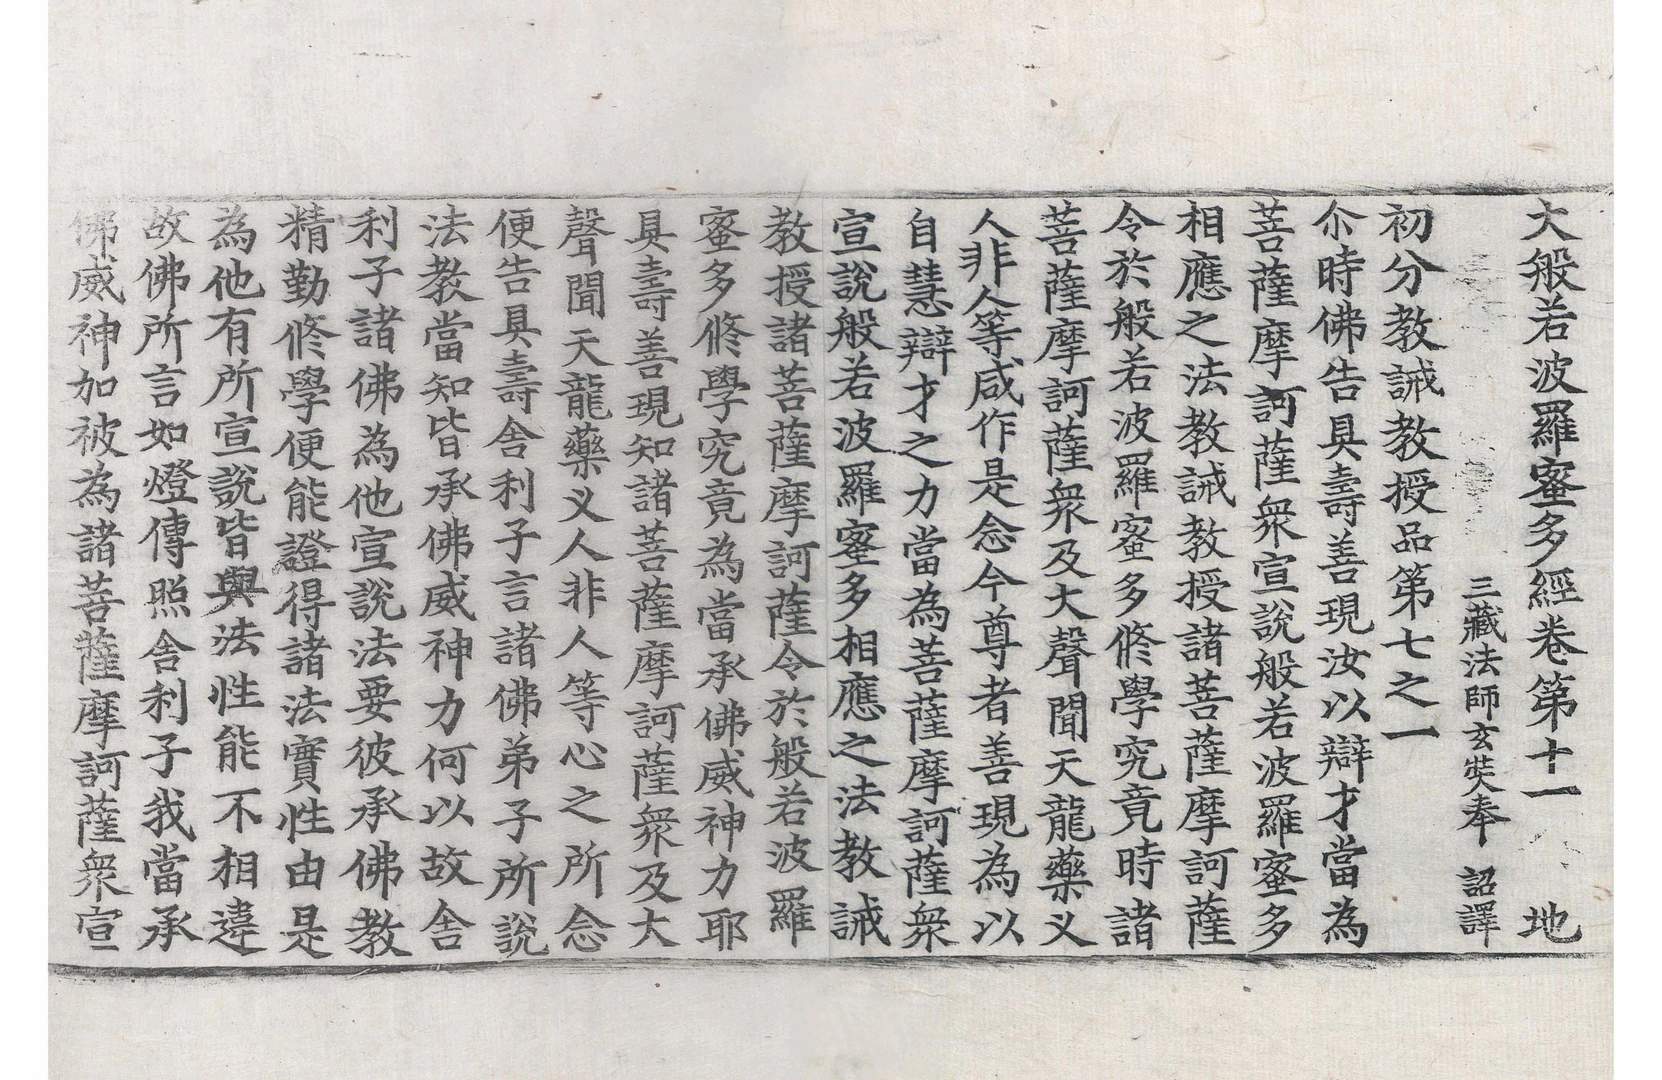 大般若波羅蜜多經卷第十一 地
三藏法師玄奘奉 詔譯
初分教誡教授品第七之一
尒時佛告具壽善現汝以辯才當為
菩薩摩訶薩衆宣說般若波羅蜜多
相應之法教誡教授諸菩薩摩訶薩
令於般若波羅蜜多修學究竟時諸
菩薩摩訶薩衆及大聲聞天龍藥义
人非人等咸作是念今尊者善現為以
自慧辯才之力當為菩薩摩訶薩衆
宣說般若波羅蜜多相應之法教誡
教授諸菩薩摩訶薩令於般若波羅
蜜多修學究竟為當承佛威神力耶
具壽善現知諸菩薩摩訶薩衆及大
聲聞天龍藥义人非人等心之所念
便告具壽舍利子言諸佛弟子所說
法教當知皆承佛威神力何以故舍
利子諸佛為他宣說法要彼承佛教
精勤修學便能證得諸法實性由是
為他有所宣說皆與法性能不相違
故佛所言如燈傳照舍利子我當承
佛威神加被為諸菩薩摩訶薩衆宣